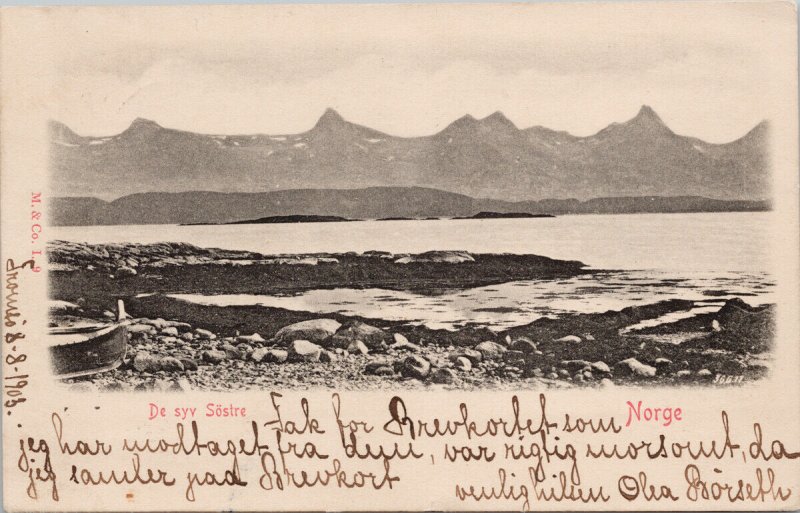 M. & Co. L. 9
Tromsö 8-8-1903.
De syv Söstre
Norge
Tak for Brevkortet som
jeg har modtaget fra dem, var rigtig morsomt, da
jeg samler paa Brevkort
venlig hilsen Olea Börseth